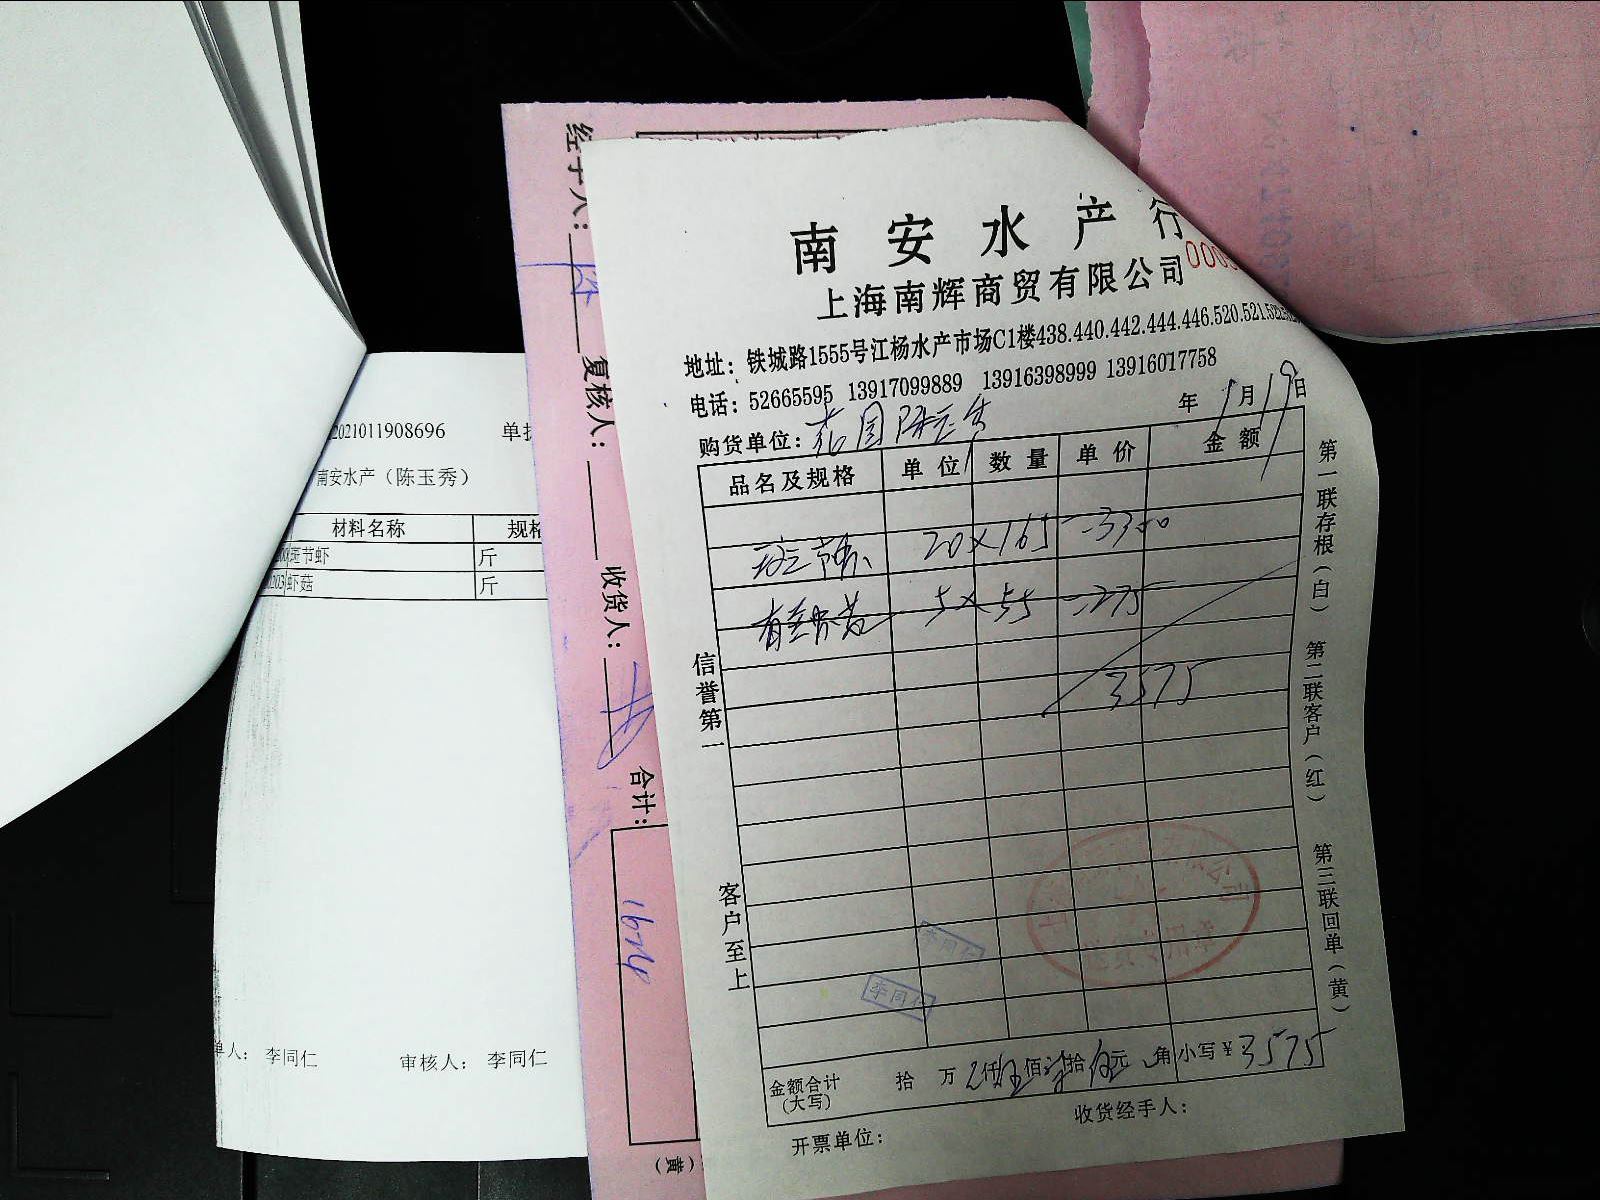 南安水产行
上海南辉商贸有限公司
地址：铁城路1555号江杨水产市场C1楼438.440.442.444.446.520.521.522
电话：52665595 13917099889 13916398999 13916017758
年 1月19日
购货单位：
品名及规格 单位 数量 单价 金额
斑节虾 20×165=3300
5×55=275
3575
金额合计(大写) 拾 万 仟 佰 拾 元 角 小写¥3575
收货经手人：
开票单位：
信誉第一
客户至上
第一联存根(白) 第二联客户(红) 第三联回单(黄)
李同仁
李同仁
经手人：
复核人：
收货人：
合计：
1674
(黄)
2021011908696
南安水产（陈玉秀）
材料名称 规格
斑节虾 斤
虾菇 斤
单人： 李同仁 审核人： 李同仁